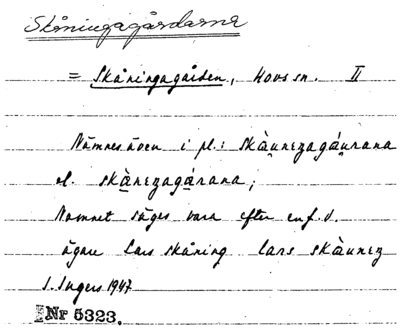 Skåningagårdarna
= Skåningagården, Hovs sn. II
Nämnes även i pl.: skàunezagáurana
el. skànezagárana;
Namnet säges vara efter en f.d.
ägare Lars Skåning lars skàunez
S. Ingers 1947
Nr 5323.